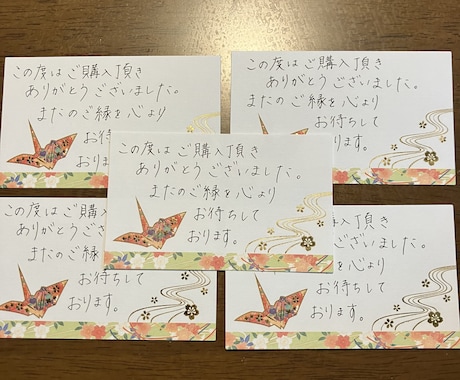 この度はご購入頂き
ありがとうございました。
またのご縁を心より
お待ちして
おります。
この度はご購入頂き
ありがとうございました。
またのご縁を心より
お待ちして
おります。
この度はご購入頂き
ありがとうございました。
またのご縁を心より
お待ちして
おります。
この度はご購入
ありがとうござ
またのご縁
お待ちして
おります。
購入頂き
ございました。
を心より
お待ちして
おります。